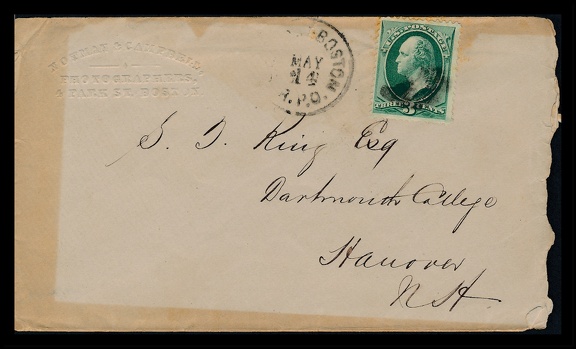 NORMAN & CAMPBELL,
PHONOGRAPHERS,
4 PARK ST. BOSTON
BOSTON
MAY
R.P.O.
U.S. POSTAGE
THREE 3 CENTS
S. D. King Esq
Dartmouth College
Hanover
N H